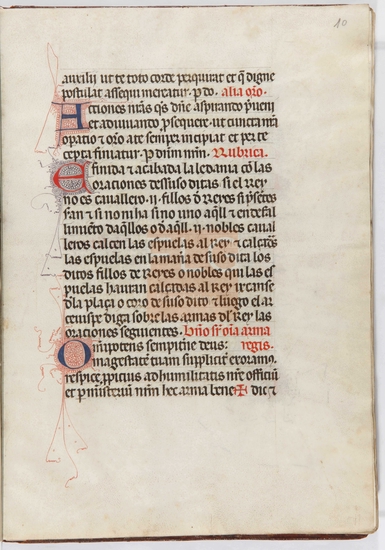 10
auxilij ut te toto corde perquirat et q̄ digne
postulat assequi mereatur. p do. alia oro.
Actiones nr̄as qs̄ dn̄e aspirando p̄ueni
et adiuuando ꝓsequere. ut cuncta nr̄a
opatio ⁊ oro a te semper incipiat et per te
cepta finiatur. p dn̄m nr̄m. Rubrica.
Efinida ⁊ acabada la ledania cō las
oraciones dessuso ditas si el Rey
no es cauallero .ii. fillos d̄ Reyes si p̄sētes
fan ⁊ si no ni ha sino uno aq̄ll ⁊ en defal
limiēto daq̄llos o d̄ aq̄ll .ii. nobles caual
leros calcen las espuelas al Rey ⁊ calçades
las espuelas en la manera de suso dita los
ditos fillos de Reyes o nobles qui las es
puelas hauran calçadas al Rey tirense
dla plaça o coro de suso dito ⁊ luego el ar
ceuispe diga sobre las armas dl Rey las
oraciones seguientes. Bn̄o sr̄ oīa arma
Om̄ipotens sempit̄ne deus; regis.
magestatē tuam supplicit̄ exoramꝰ.
respice ꝓpicius ad humilitatis nr̄e officiū
et p ministeriū nr̄m hec arma bene✠dic ⁊